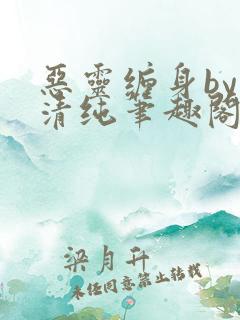 惡靈缠身by
清纯筆趣閣
梁月升
未经同意禁止转载